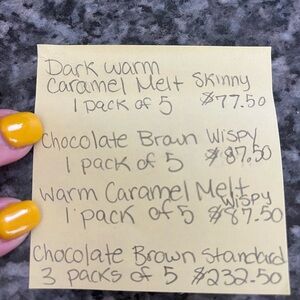 Dark Warm
Caramel Melt Skinny
1 pack of 5 $77.50
Chocolate Brown Wispy
1 pack of 5 $87.50
Warm Caramel Melt Wispy
1 pack of 5 $87.50
Chocolate Brown Standard
3 packs of 5 $232.50